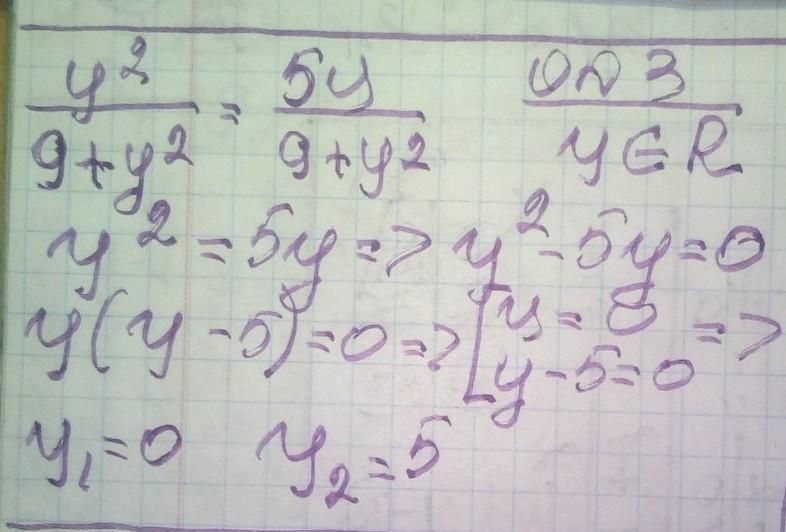 y²/(9+y²) = 5y/(9+y²)
ОДЗ
y∈R
y² = 5y => y² - 5y = 0
y(y - 5) = 0 => [y = 0
y - 5 = 0 =>
y₁ = 0 y₂ = 5